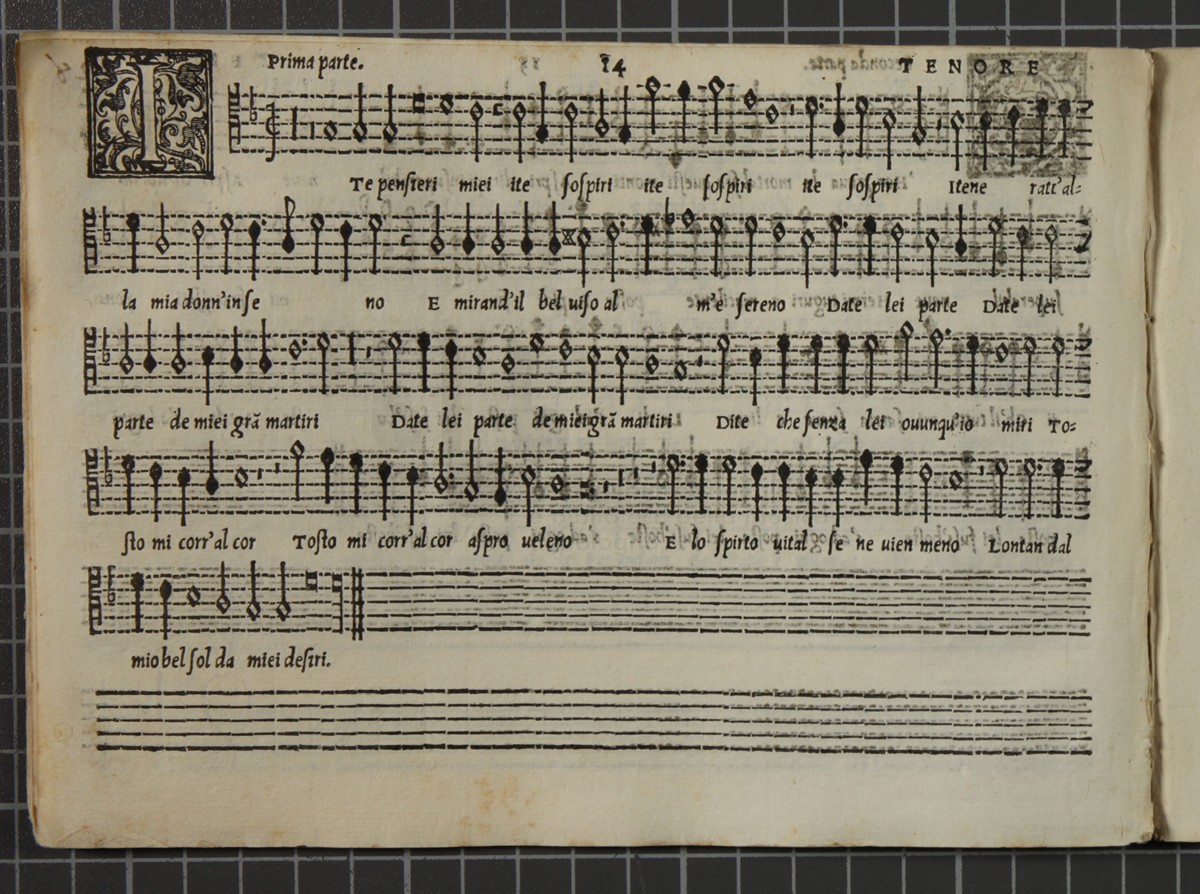 Prima parte. 14 TENORE
I Te pensieri miei ite sospiri ite sospiri ite sospiri Itene ratt'al-
la mia donn'in se no E mirand'il bel uiso al m'e sereno Date lei parte Date lei
parte de miei grã martiri Date lei parte de miei grã martiri Dite che senza lei ouunqu'io miri To-
sto mi corr'al cor Tosto mi corr'al cor aspro ueleno E lo spirto uital se ne uien meno Lontan dal
mio bel sol da miei desiri.